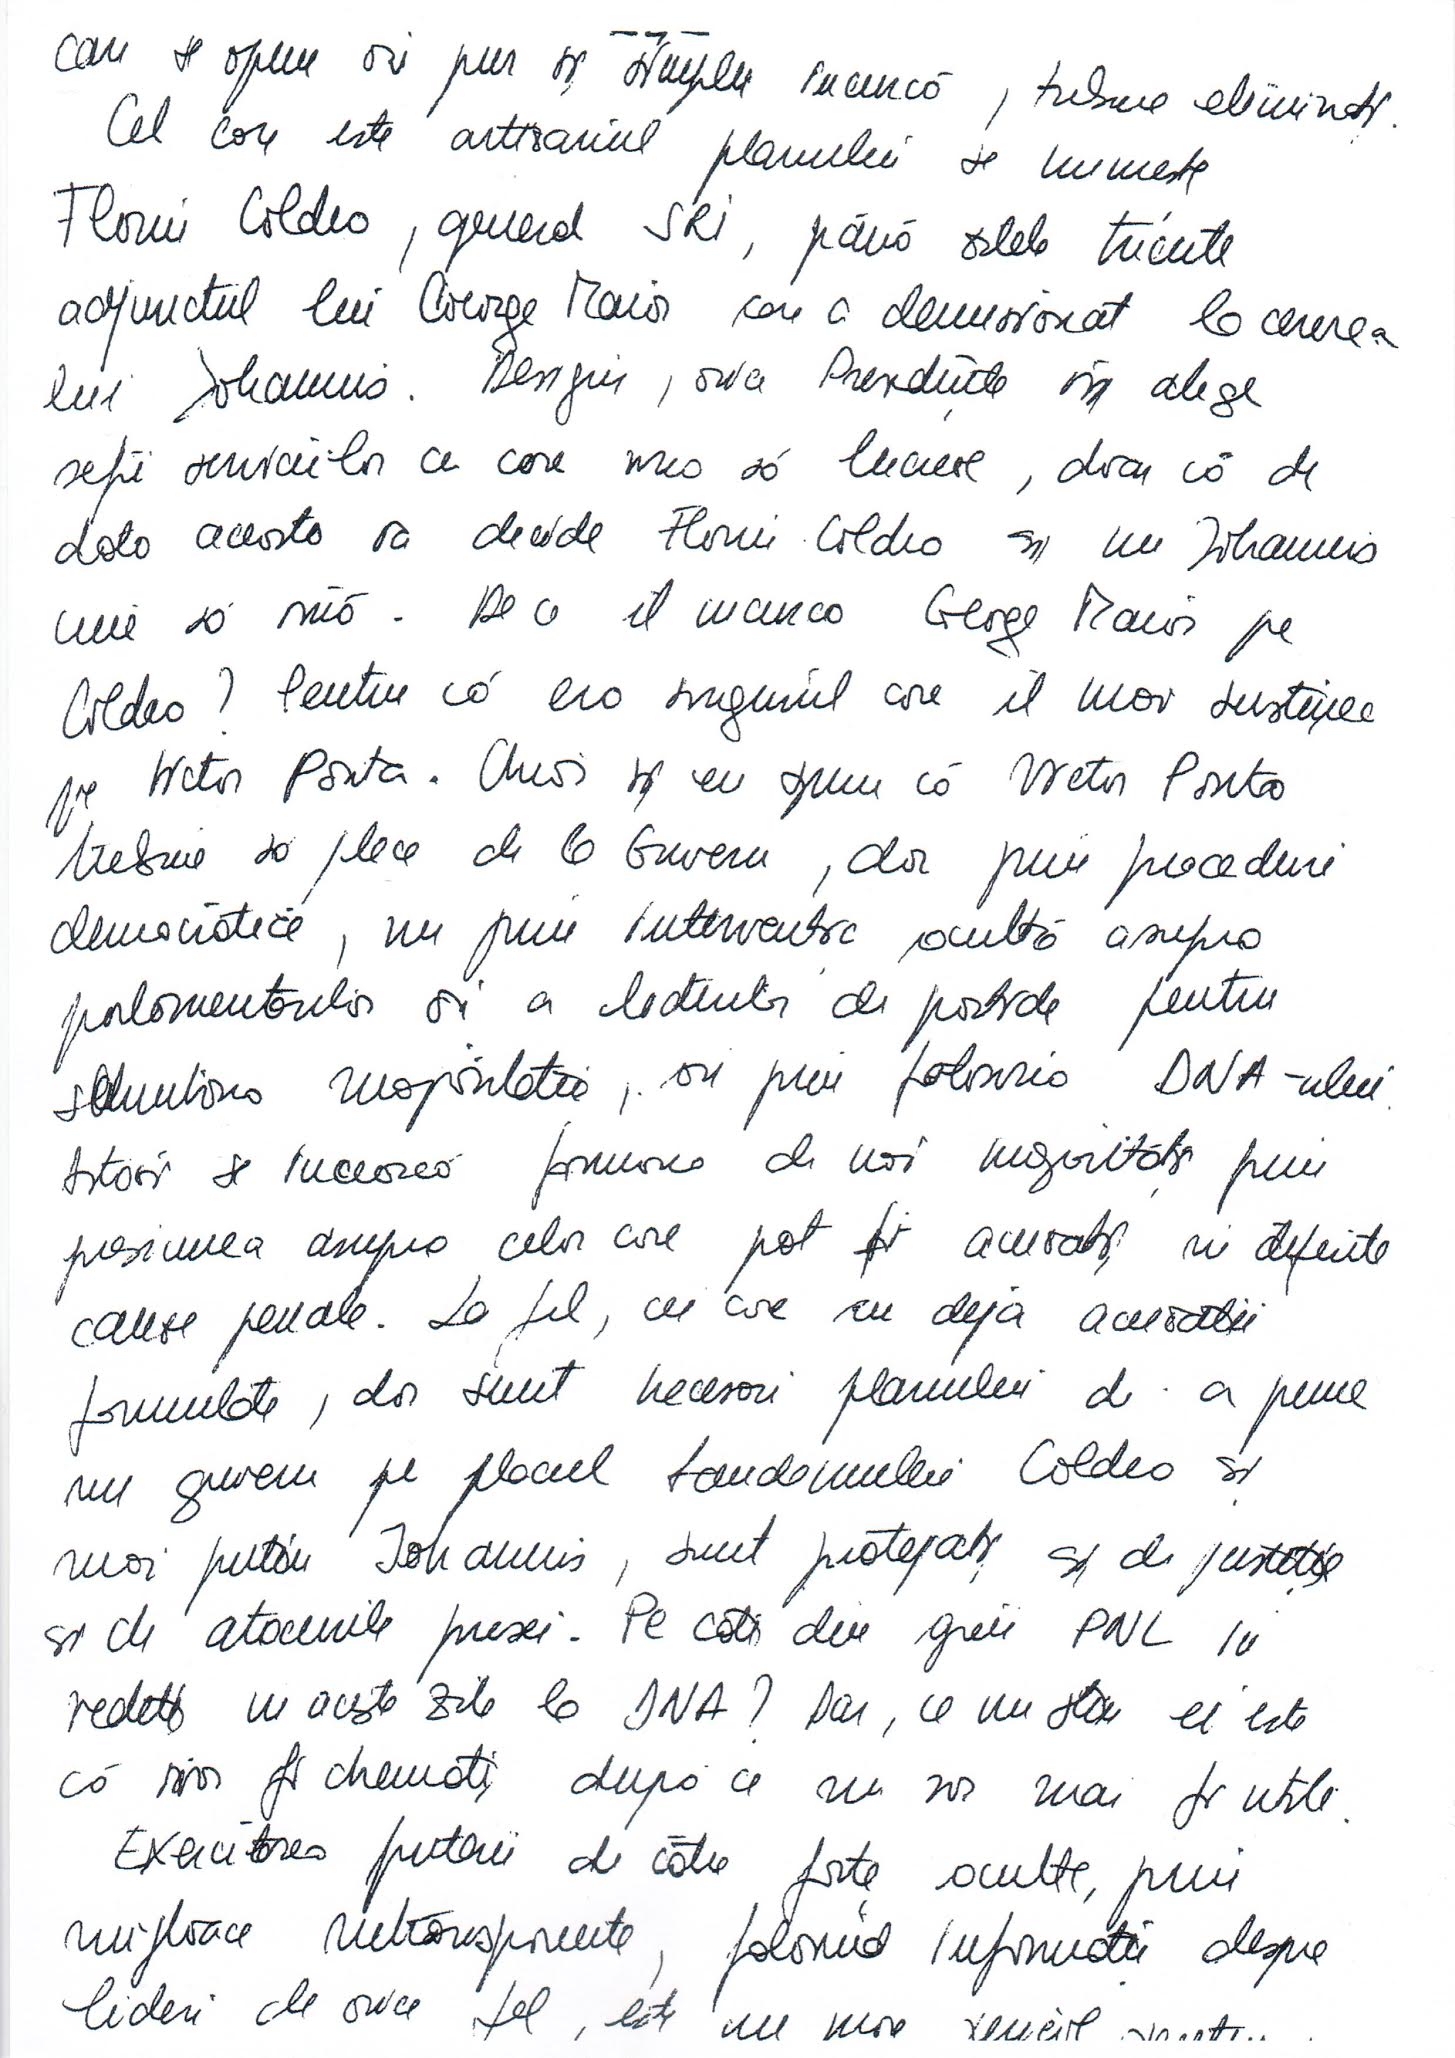 care se opun ori pur și simplu încurcă, trebuie eliminați.
Cel care este artizanul planului se numește
Florin Coldea, general SRI, până zilele trecute
adjunctul lui George Maior care a demisionat la cererea
lui Johannis. Desigur, orice Președinte își alege
șefii serviciilor cu care vrea să lucreze, doar că de
data aceasta va decide Florin Coldea și nu Johannis
cine să vină. De ce îl încurca George Maior pe
Coldea? Pentru că era singurul care îl mai susținea
pe Victor Ponta. Chiar și eu spun că Victor Ponta
trebuie să plece de la Guvern, dar prin proceduri
democratice, nu prin intervenția ocultă asupra
parlamentarilor ori a liderilor de partide pentru
schimbarea majorității, ori prin folosirea DNA-ului.
Astăzi se încearcă formarea de noi majorități prin
presiunea asupra celor care pot fi acuzați în diferite
cauze penale. La fel, cei care au deja acuzații
formulate, dar sunt necesari planului de a pune
un guvern pe placul tandemului Coldea și
mai puțin Johannis, sunt protejați și de justiție
și de atacurile presei. Pe câți din greii PNL îi
vedeți în aceste zile la DNA? Dar, ce nu știu ei este
că vor fi chemați după ce nu vor mai fi utili.
Exercitarea puterii de către forțe oculte, prin
mijloace netransparente, folosind informații despre
lideri de orice fel, este un mare